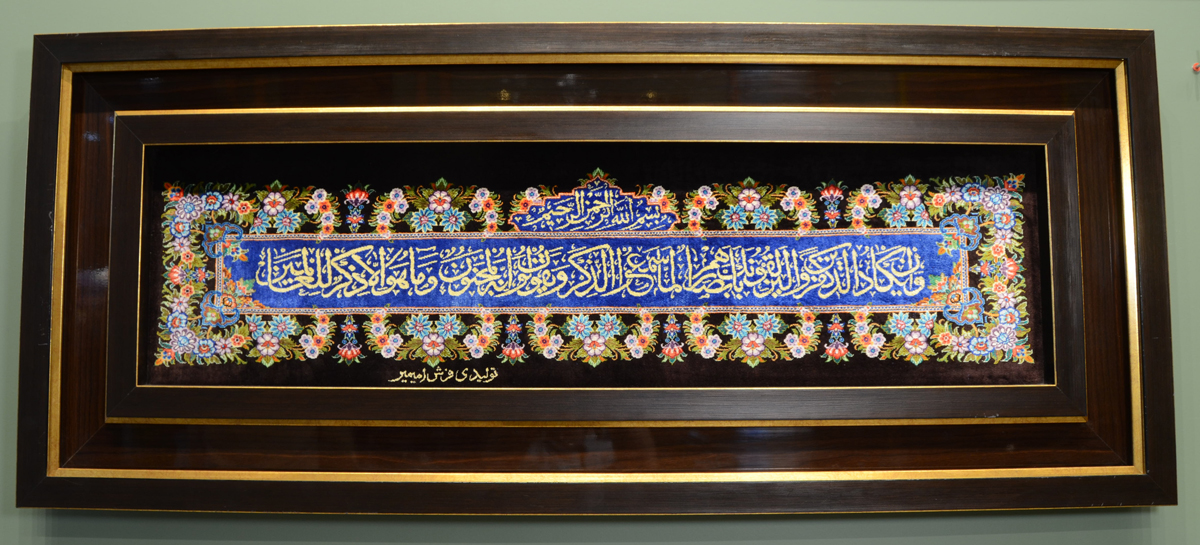 بسم الله الرحمن الرحيم
وإن يكاد الذين كفروا ليزلقونك بأبصارهم لما سمعوا الذكر ويقولون إنه لمجنون وما هو إلا ذكر للعالمين
تولیدی فرش امیمیر